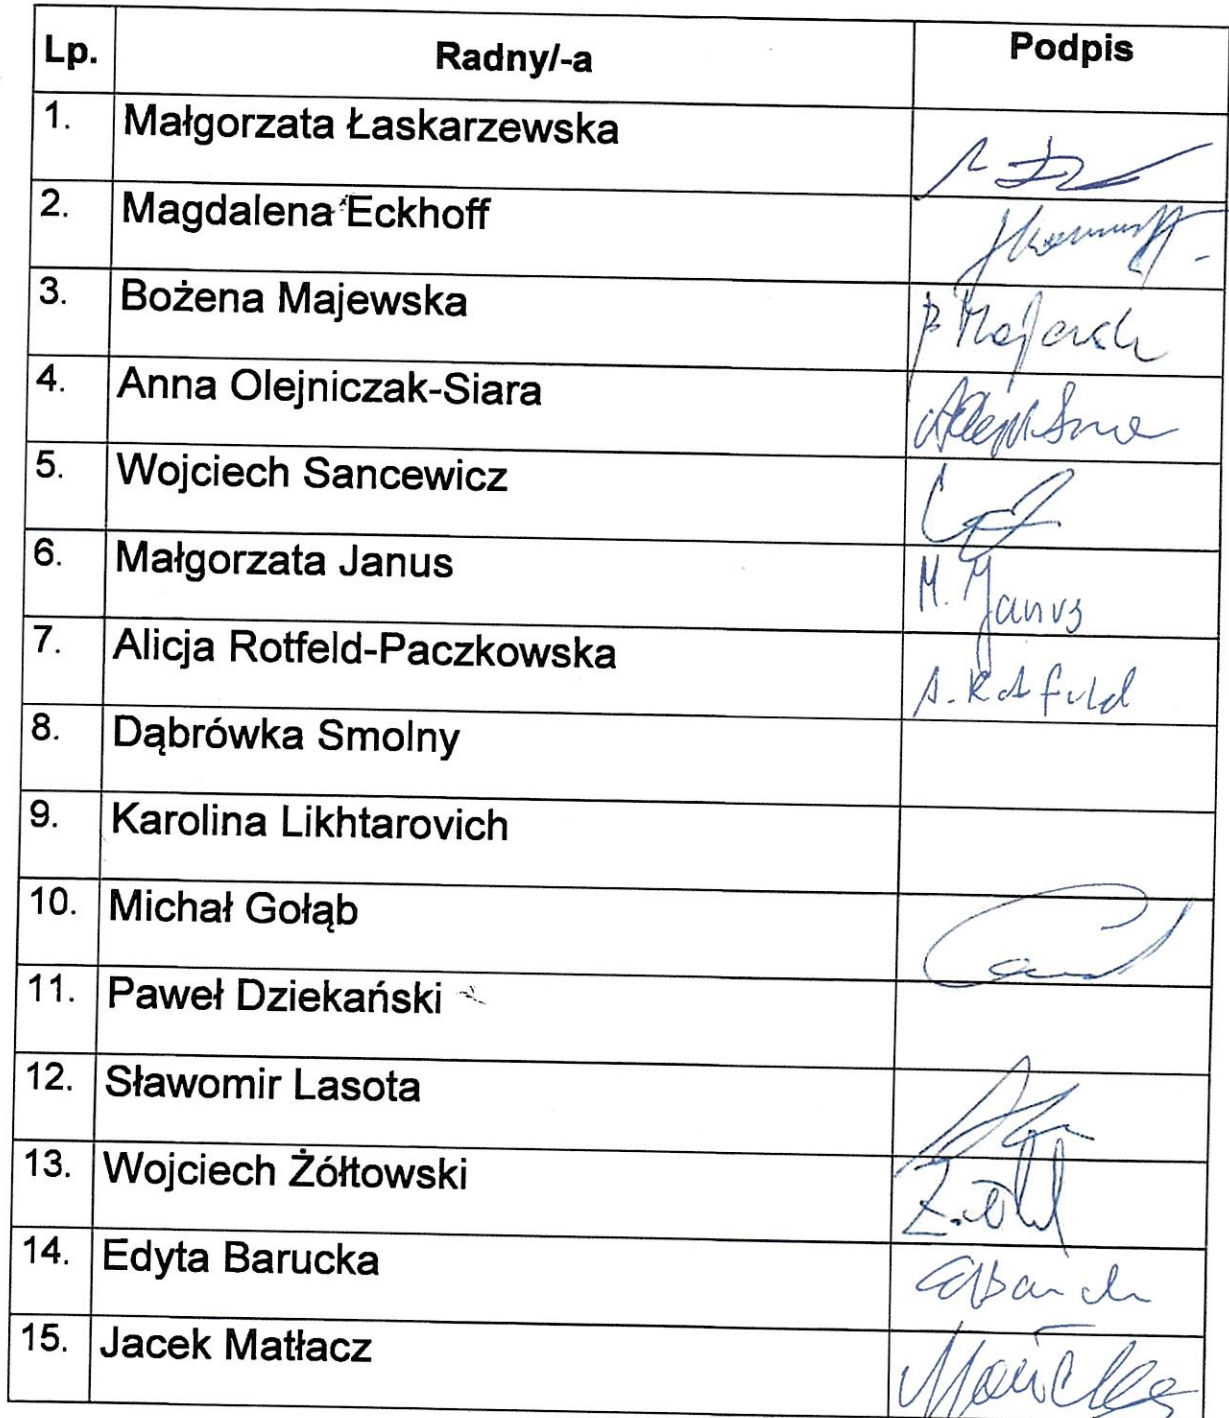 Lp. Radny/-a Podpis
1. Małgorzata Łaskarzewska
2. Magdalena Eckhoff
3. Bożena Majewska
4. Anna Olejniczak-Siara
5. Wojciech Sancewicz
6. Małgorzata Janus M. Janus
7. Alicja Rotfeld-Paczkowska A. Rotfeld
8. Dąbrówka Smolny
9. Karolina Likhtarovich
10. Michał Gołąb
11. Paweł Dziekański
12. Sławomir Lasota
13. Wojciech Żółtowski
14. Edyta Barucka
15. Jacek Matłacz